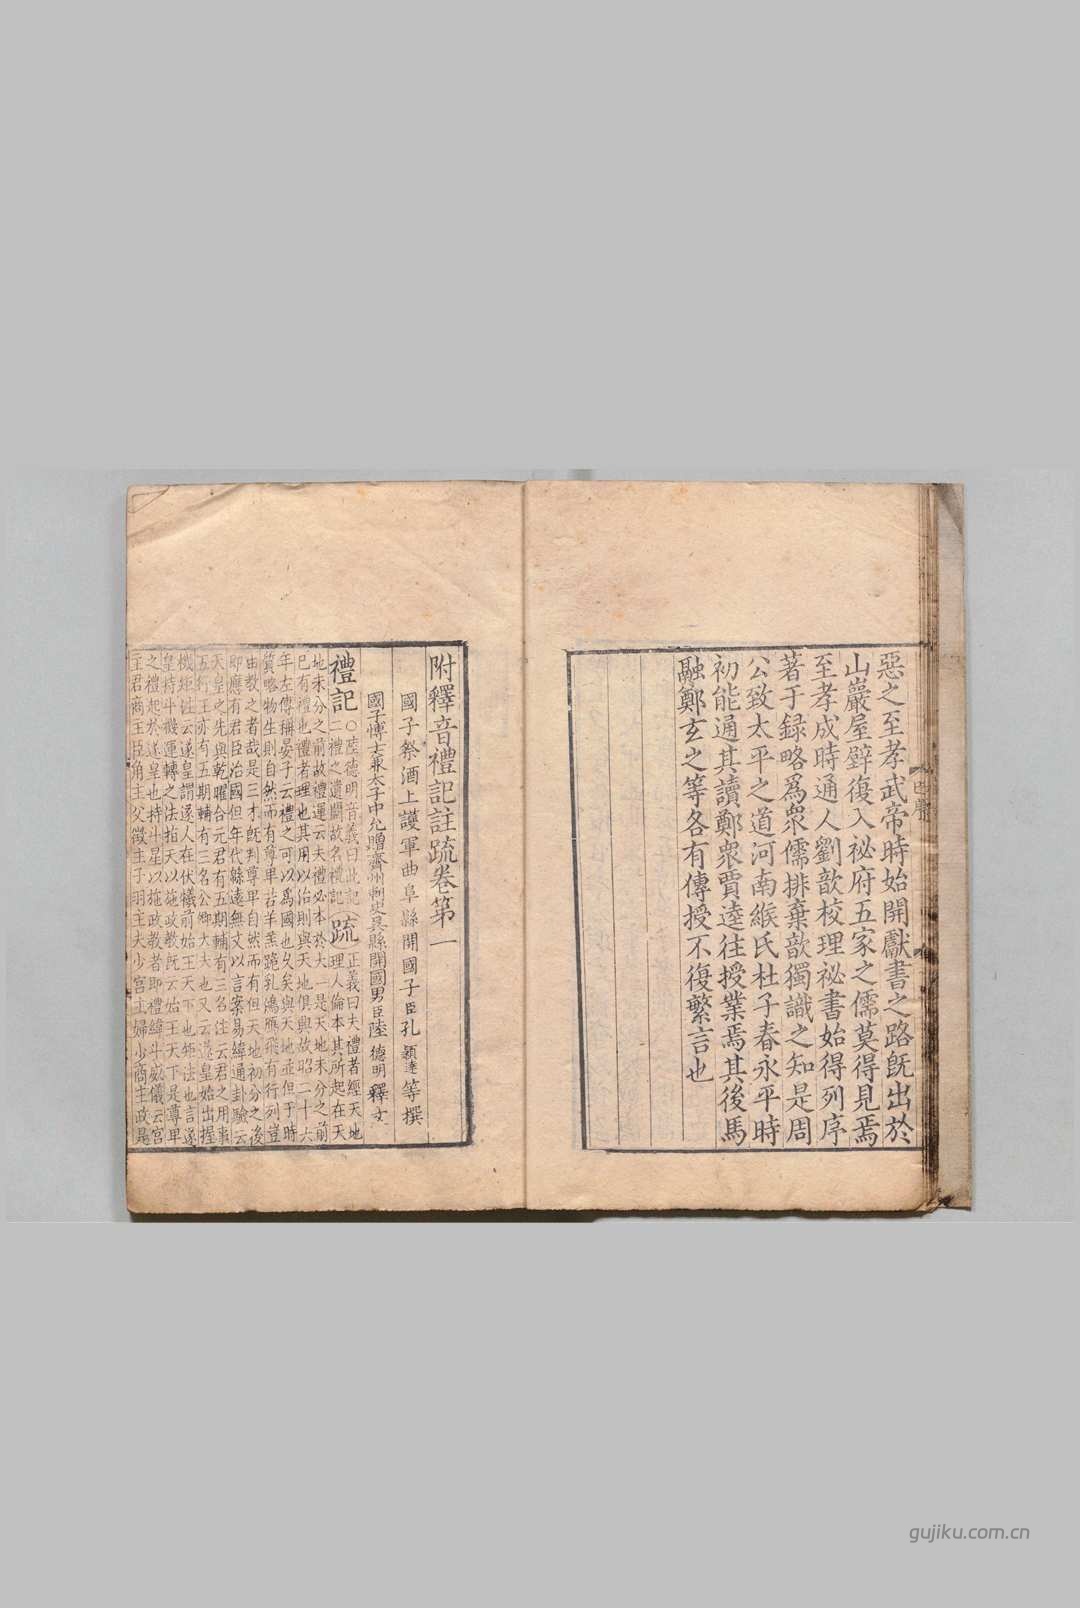 惡之至孝武帝時始開獻書之路旣出於
山巖屋壁復入祕府五家之儒莫得見焉
至孝成時通人劉歆校理祕書始得列序
著于録略爲衆儒排棄歆獨識之知是周
公致太平之道河南緱氏杜子春永平時
初能通其讀鄭衆賈逵往授業焉其後馬
融鄭玄之等各有傳授不復繁言也
附釋音禮記註疏卷第一
國子祭酒上護軍曲阜縣開國子臣孔穎達等撰
國子博士兼太子中允贈齊州刺史吳縣開國男臣陸德明釋文
禮記
○陸德明音義曰此記
二禮之遺闕故名禮記
疏
正義曰夫禮者經天地
理人倫本其所起在天
地未分之前故禮運云夫禮必本於大一是天地未分之前
已有禮也禮者理也其用以治則與天地俱興故昭二十六
年左傳稱晏子云禮之可以爲國也乆矣與天地並但于時
質略物生則自然而有尊卑若羊羔跪乳鴻鴈飛有行列豈
由敎之者哉是三才旣判尊卑自然而有但天地初分之後
即應有君臣治國但年代緜遠無文以言案易緯通卦驗云
天皇之先與乾曜合元君有五期輔有三名注云君之用事
五行王亦有五期輔有三名公卿大夫也又云遂皇始出握
機矩注云遂皇謂遂人在伏犧前始王天下也矩法也言遂
皇持斗機運轉之法指天以施政敎旣云始王天下是尊卑
之禮起於遂皇也持斗星以施政敎者即禮緯斗威儀云宮
主君商主臣角主父徵主子羽主夫少宮主婦少商主政是
gujiku.com.cn